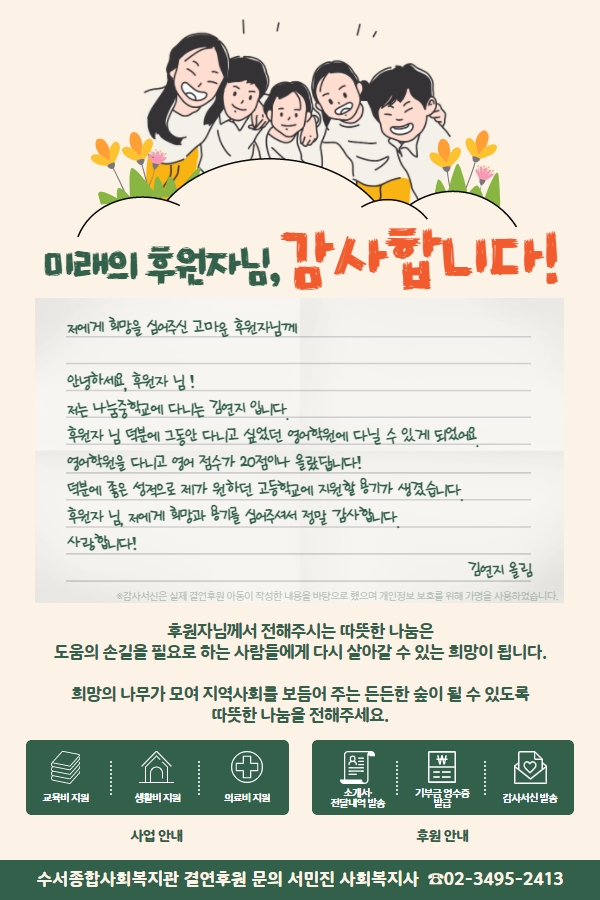 미래의 후원자님, 감사합니다!
저에게 희망을 심어주신 고마운 후원자님께
안녕하세요, 후원자 님!
저는 나눔중학교에 다니는 김연지 입니다.
후원자 님 덕분에 그동안 다니고 싶었던 영어학원에 다닐 수 있게 되었어요.
영어학원을 다니고 영어 점수가 20점이나 올랐답니다!
덕분에 좋은 성적으로 제가 원하던 고등학교에 지원할 용기가 생겼습니다.
후원자 님, 저에게 희망과 용기를 심어주셔서 정말 감사합니다.
사랑합니다!
김연지 올림
※감사서신은 실제 결연후원 아동이 작성한 내용을 바탕으로 했으며 개인정보 보호를 위해 가명을 사용하였습니다.
후원자님께서 전해주시는 따뜻한 나눔은
도움의 손길을 필요로 하는 사람들에게 다시 살아갈 수 있는 희망이 됩니다.
희망의 나무가 모여 지역사회를 보듬어 주는 든든한 숲이 될 수 있도록
따뜻한 나눔을 전해주세요.
교육비 지원
생활비 지원
의료비 지원
소개서·
전달내역 발송
₩
기부금 영수증
발급
감사서신 발송
사업 안내
후원 안내
수서종합사회복지관 결연후원 문의 서민진 사회복지사 ☎02-3495-2413